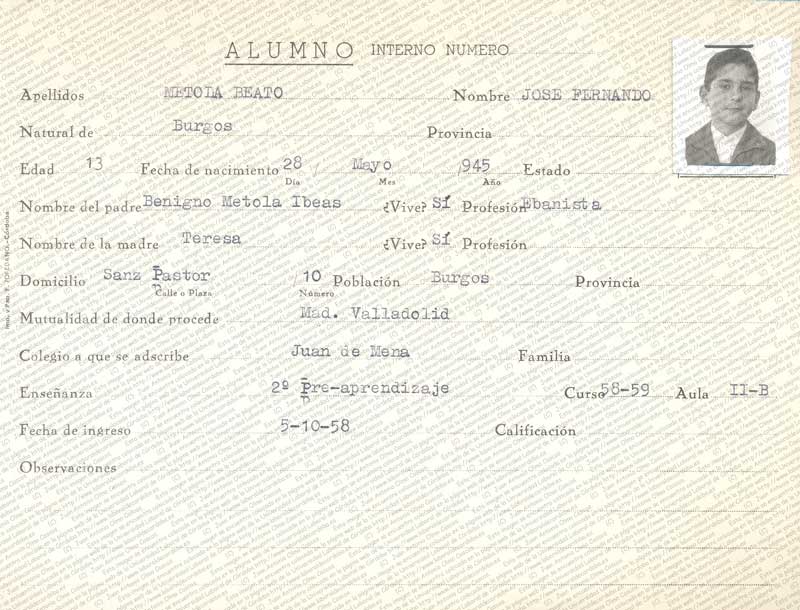 ALUMNO INTERNO NUMERO
Apellidos METOLA BEATO Nombre JOSE FERNANDO
Natural de Burgos Provincia
Edad 13 Fecha de nacimiento 28 / Mayo /945 Estado
Día Mes Año
Nombre del padre Benigno Metola Ibeas ¿Vive? SÍ Profesión Ebanista
Nombre de la madre Teresa ¿Vive? SÍ Profesión
Domicilio Sanz Pastor / 10 Población Burgos Provincia
Calle o Plaza Número
Mutualidad de donde procede Mad. Valladolid
Colegio a que se adscribe Juan de Mena Familia
Enseñanza 2º Pre-aprendizaje Curso 58-59 Aula II-B
Fecha de ingreso 5-10-58 Calificación
Observaciones